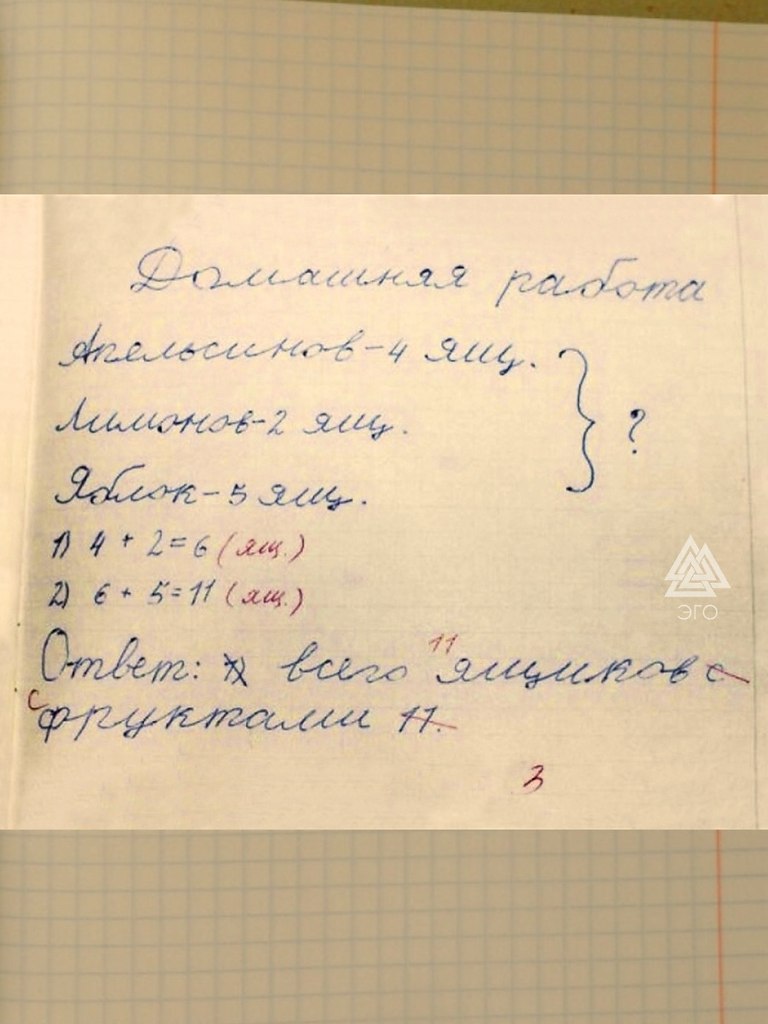 Домашняя работа
Апельсинов-4 ящ.
Лимонов-2 ящ.
Яблок-5 ящ.
?
1) 4 + 2=6 (ящ.)
2) 6 + 5=11 (ящ.)
ЭГО
Ответ: всего 11 ящиков с
с фруктами 11.
3